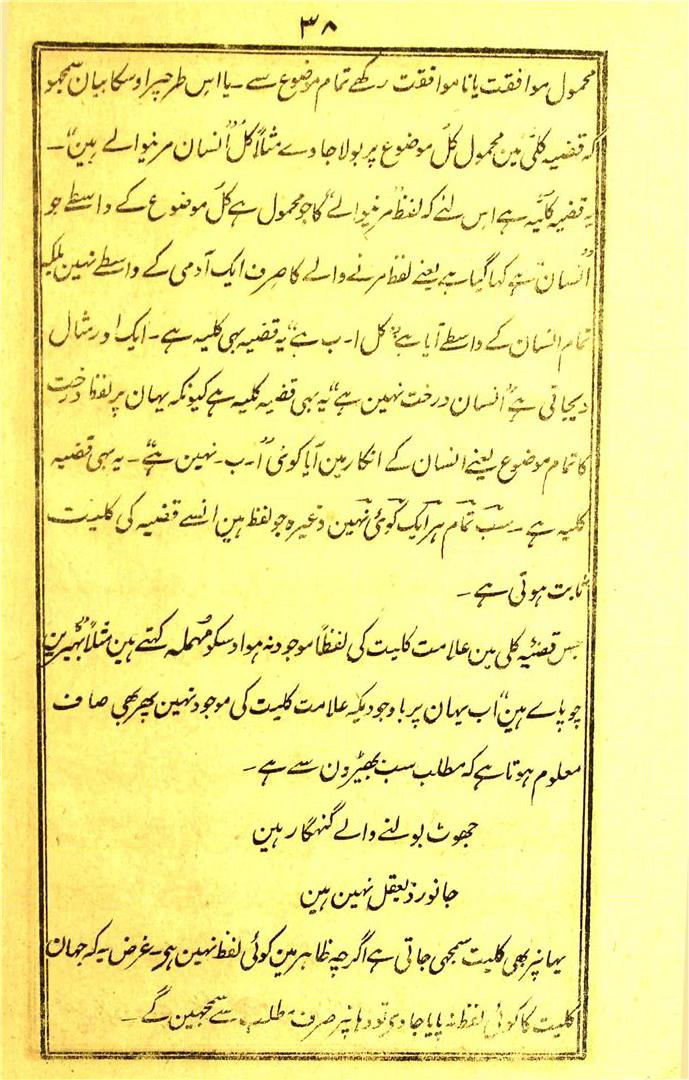 ۳۸
محمول موافقت یا ناموافقت رکھے تمام موضوع سے ۔ یا اس طرحپر اوسکا بیان سمجھو
کہ قضیہ کلی مین محمول کل موضوع پر بولا جاوے مثلاً کل "انسان مرنیوالے ہین" ۔
یہ قضیہ کلیہ ہے اس لئے کہ لفظ "مرنیوالے" کا جو محمول ہے کل موضوع کے واسطے جو
"انسان" ہے کہا گیا ہے یعنے لفظ مرنے والے کا صرف ایک آدمی کے واسطے نہین بلکہ
تمام انسان کے واسطے آیا ہے "کل ا ۔ ب ہے" یہ قضیہ بھی کلیہ ہے ۔ ایک اور مثال
دیجاتی ہے "انسان درخت نہین ہے" یہ بھی قضیہ کلیہ ہے کیونکہ یہان پر لفظ درخت
کا تمام موضوع یعنے انسان کے انکار مین آیا کوئی "ا ۔ ب ۔ نہین ہے" ۔ یہ بھی قضیہ
کلیہ ہے ۔ سب تمام ہر ایک کوئی نہین وغیرہ جو لفظ ہین انسے قضیہ کی کلیت
ثابت ہوتی ہے ۔
جس قضیہ کلی مین علامت کلیت کی لفظاً موجود نہ ہو اوسکو مہملہ کہتے ہین مثلاً "بھیڑین
چوپاے ہین" اب یہان پر باوجودیکہ علامت کلیت کی موجود نہین پھر بھی صاف
معلوم ہوتا ہے کہ مطلب سب بھیڑون سے ہے ۔
جھوٹ بولنے والے گنہگار ہین
جانور ذیعقل نہین ہین
یہانپر بھی کلیت سمجھی جاتی ہے اگرچہ ظاہر مین کوئی لفظ نہین ہے ۔ غرض یہ کہ جہان
کلیت کا کوئی لفظ نہ پایا جاوے تو وہانپر صرف مطلب سے سمجھین گے ۔